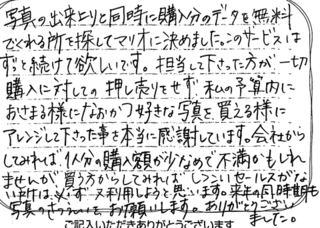 写真の出来上りと同時に購入分のデータを無料
でくれる所を探してマリオに決めました。このサービスは
ずっと続けて欲しいです。担当して下さった方が一切
購入に対しての押し売りをせず私の予算内に
おさまる様になおかつ好きな写真を買える様に
アレンジして下さった事を本当に感謝しています。会社から
してみれば1人分の購入額が少なめで不満かもしれ
ませんが買う方からしてみればしつこいセールスがな
い所は必ず又利用しようと思います。来年の同時期も
写真のさつえいをお願いします。ありがとうござい
ました。
ご記入いただきありがとうございます